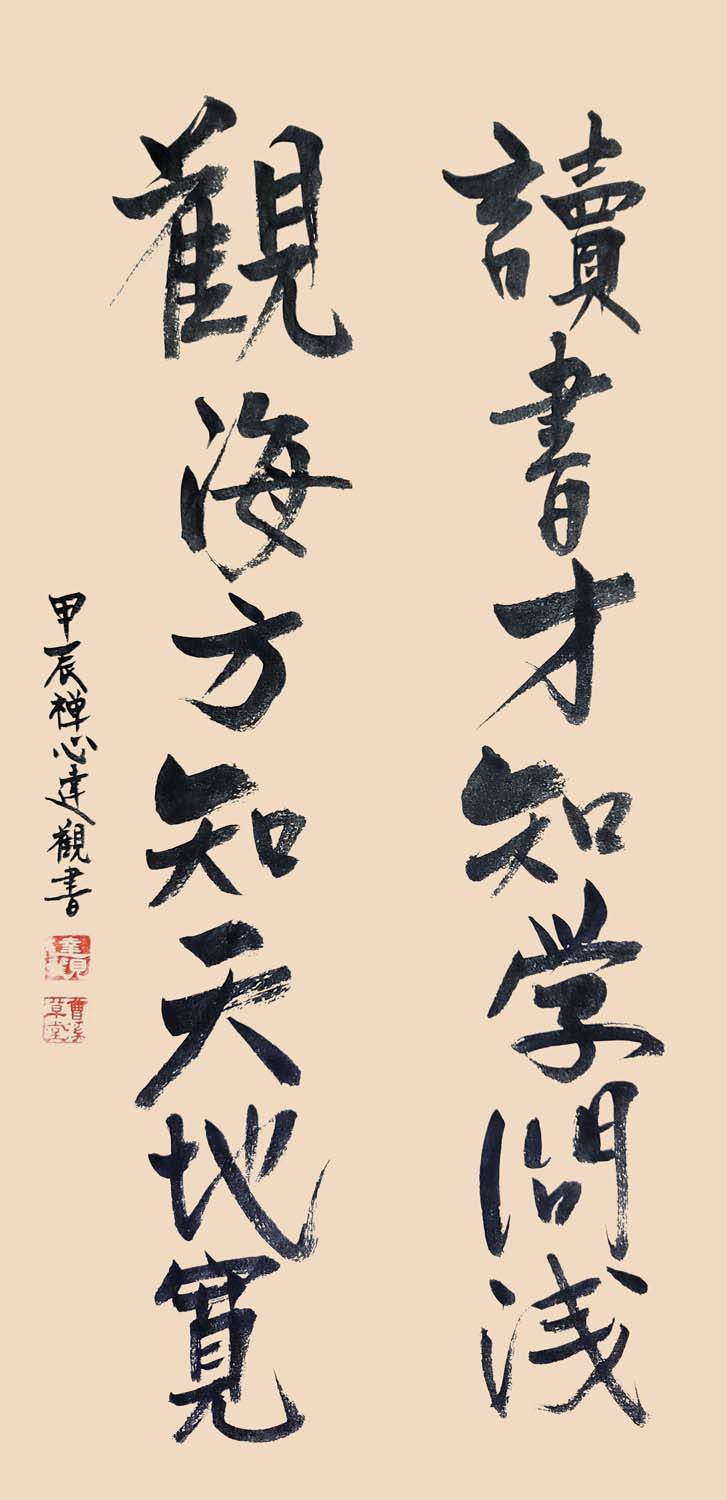 讀書才知学問浅
觀海方知天地寬
甲辰禅心達觀書
曹溪草堂